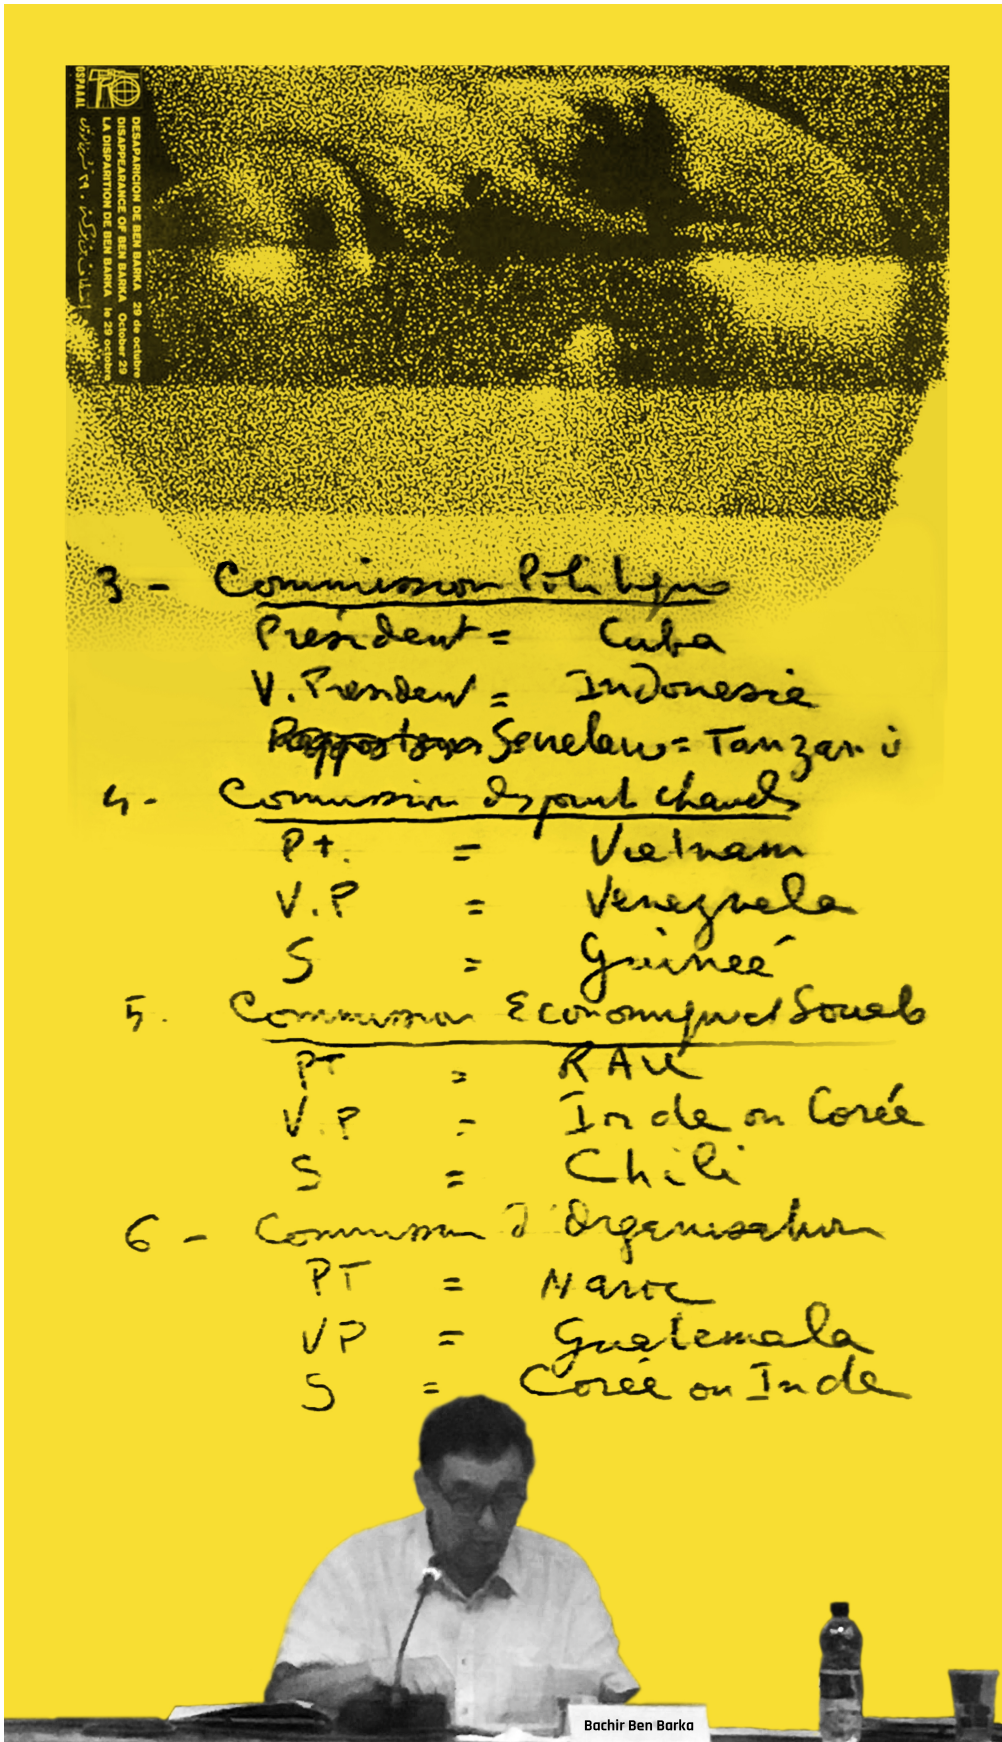 OSPAAAL
DESAPARICION DE BEN BARKA 29 de octubre
DISAPPEARANCE OF BEN BARKA October 29
LA DISPARITION DE BEN BARKA le 29 octobre
3 - Commission Politique
Président = Cuba
V. President = Indonesie
= Tanzanie
4 - Commission des points chauds
Pt. = Vietnam
V.P = Venezuela
S = Guineé
5. Commission Economique et Sociale
PT = RAU
V.P = Inde ou Corée
S = Chili
6 - Commission d'Organisation
PT = Maroc
VP = Guatemala
S = Corée ou Inde
Bachir Ben Barka